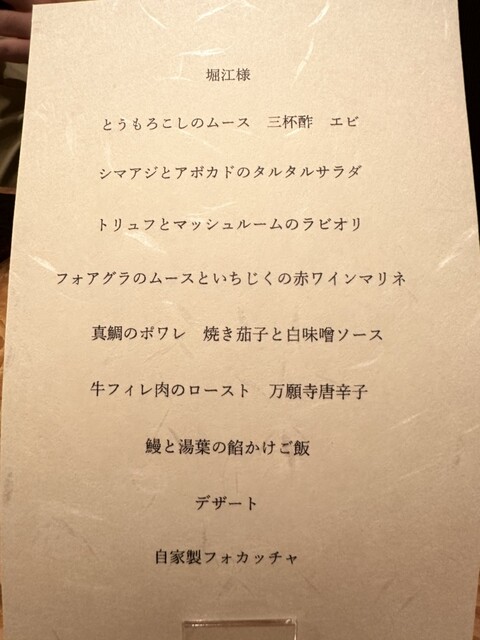 堀江様
とうもろこしのムース　三杯酢　エビ
シマアジとアボカドのタルタルサラダ
トリュフとマッシュルームのラビオリ
フォアグラのムースといちじくの赤ワインマリネ
真鯛のポワレ　焼き茄子と白味噌ソース
牛フィレ肉のロースト　万願寺唐辛子
鰻と湯葉の餡かけご飯
デザート
自家製フォカッチャ